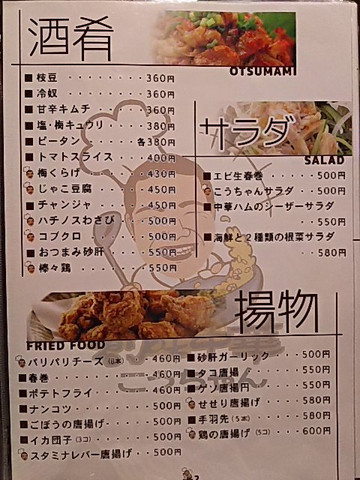 酒肴
OTSUMAMI
■枝豆 ・・・・・・・・ 360円
■冷奴 ・・・・・・・・ 360円
■甘辛キムチ ・・・・ 360円
■塩・梅キュウリ ・・・ 380円
■ピータン ・・・・ 各380円
■トマトスライス ・・・ 400円
梅くらげ ・・・・・・ 430円
■じゃこ豆腐 ・・・・ 450円
■チャンジャ ・・・・ 450円
ハチノスわさび ・・・ 500円
コブクロ ・・・・・・ 500円
■おつまみ砂肝 ・・・ 550円
棒々鶏 ・・・・・・・ 550円
サラダ
SALAD
■エビ生春巻 ・・・・ 500円
こうちゃんサラダ ・・ 500円
■中華ハムのシーザーサラダ
・・・・・・・・ 550円
■海鮮と2種類の根菜サラダ
・・・・・・・・ 580円
揚物
FRIED FOOD
パリパリチーズ (8本) ・・ 460円
■春巻 ・・・・・・・・ 460円
■ポテトフライ ・・・・ 460円
■ナンコツ ・・・・・・ 500円
■ごぼうの唐揚げ ・・・ 500円
■イカ団子 (3コ) ・・・ 500円
スタミナレバー唐揚げ ・・ 500円
■砂肝ガーリック ・・・ 500円
■タコ唐揚 ・・・・・・ 550円
■ゲソ唐揚 ・・・・・・ 550円
せせり唐揚げ ・・・・ 580円
■手羽先 (5本) ・・・・ 580円
鶏の唐揚げ (5コ) ・・・ 600円
2